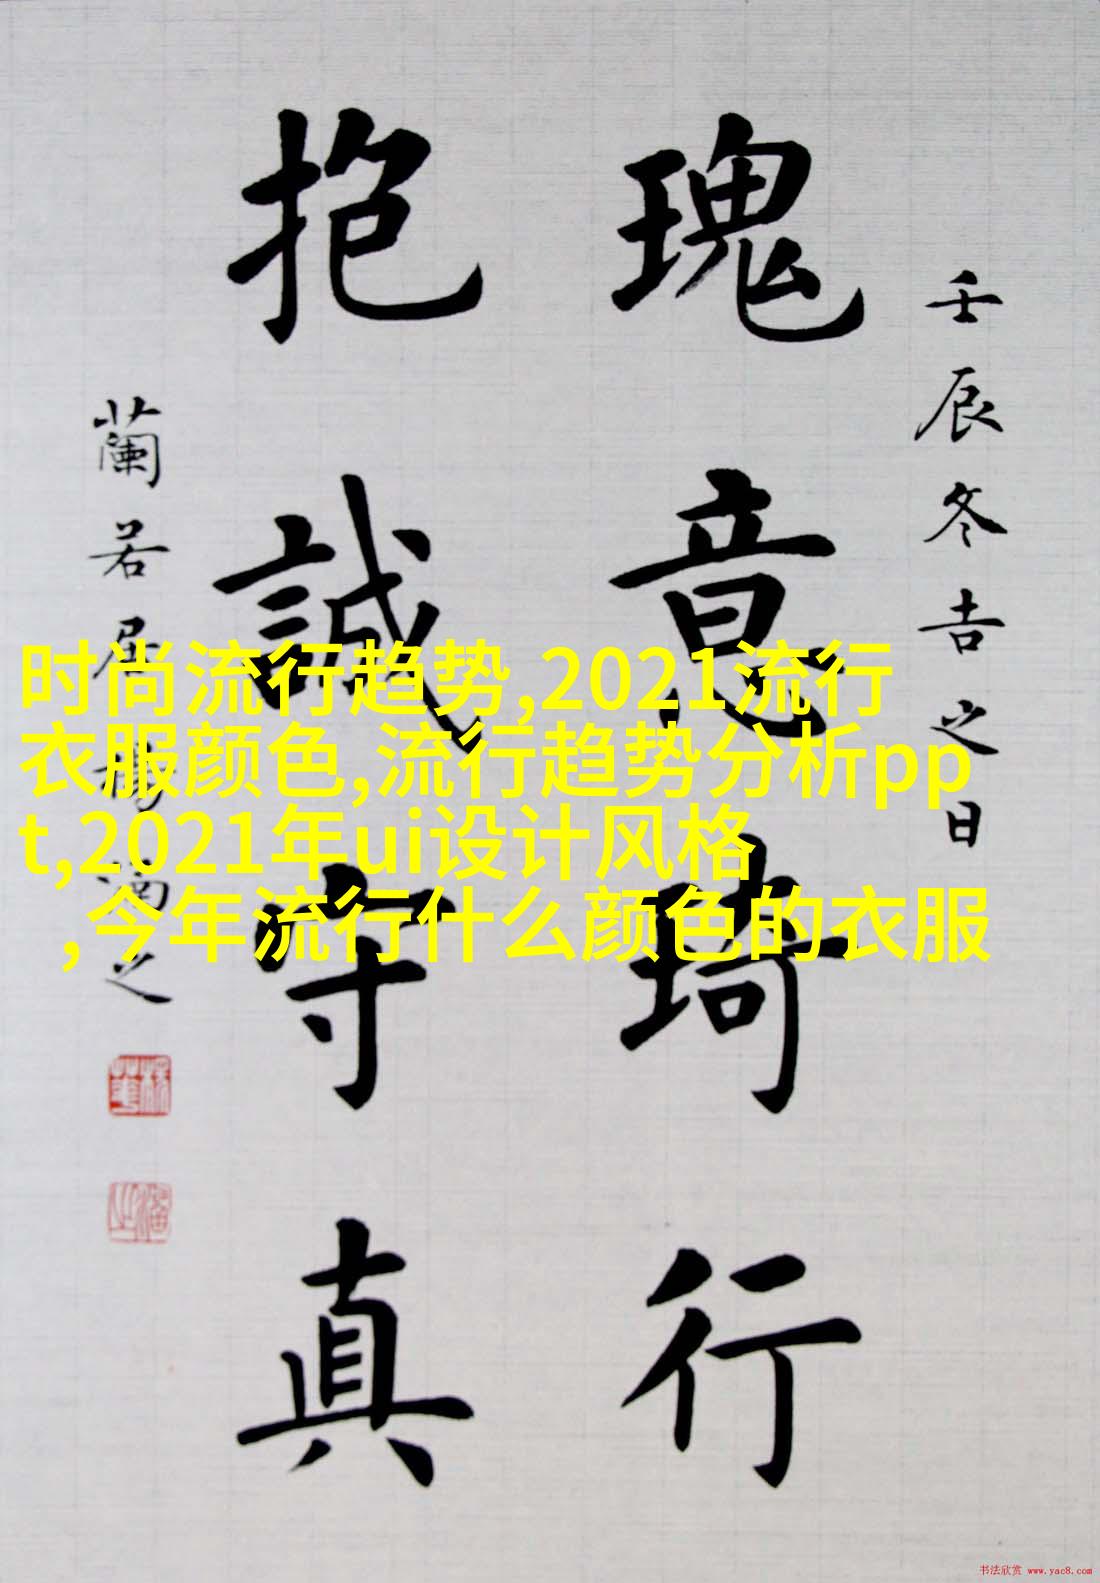 壬辰冬吉之日
瑰意琦行
抱誠守真
蘭若居之
时尚流行趋势,2021流行
衣服颜色,流行趋势分析pp
t,2021年ui设计风格
,今年流行什么颜色的衣服
书法欣赏 www.yac8.com